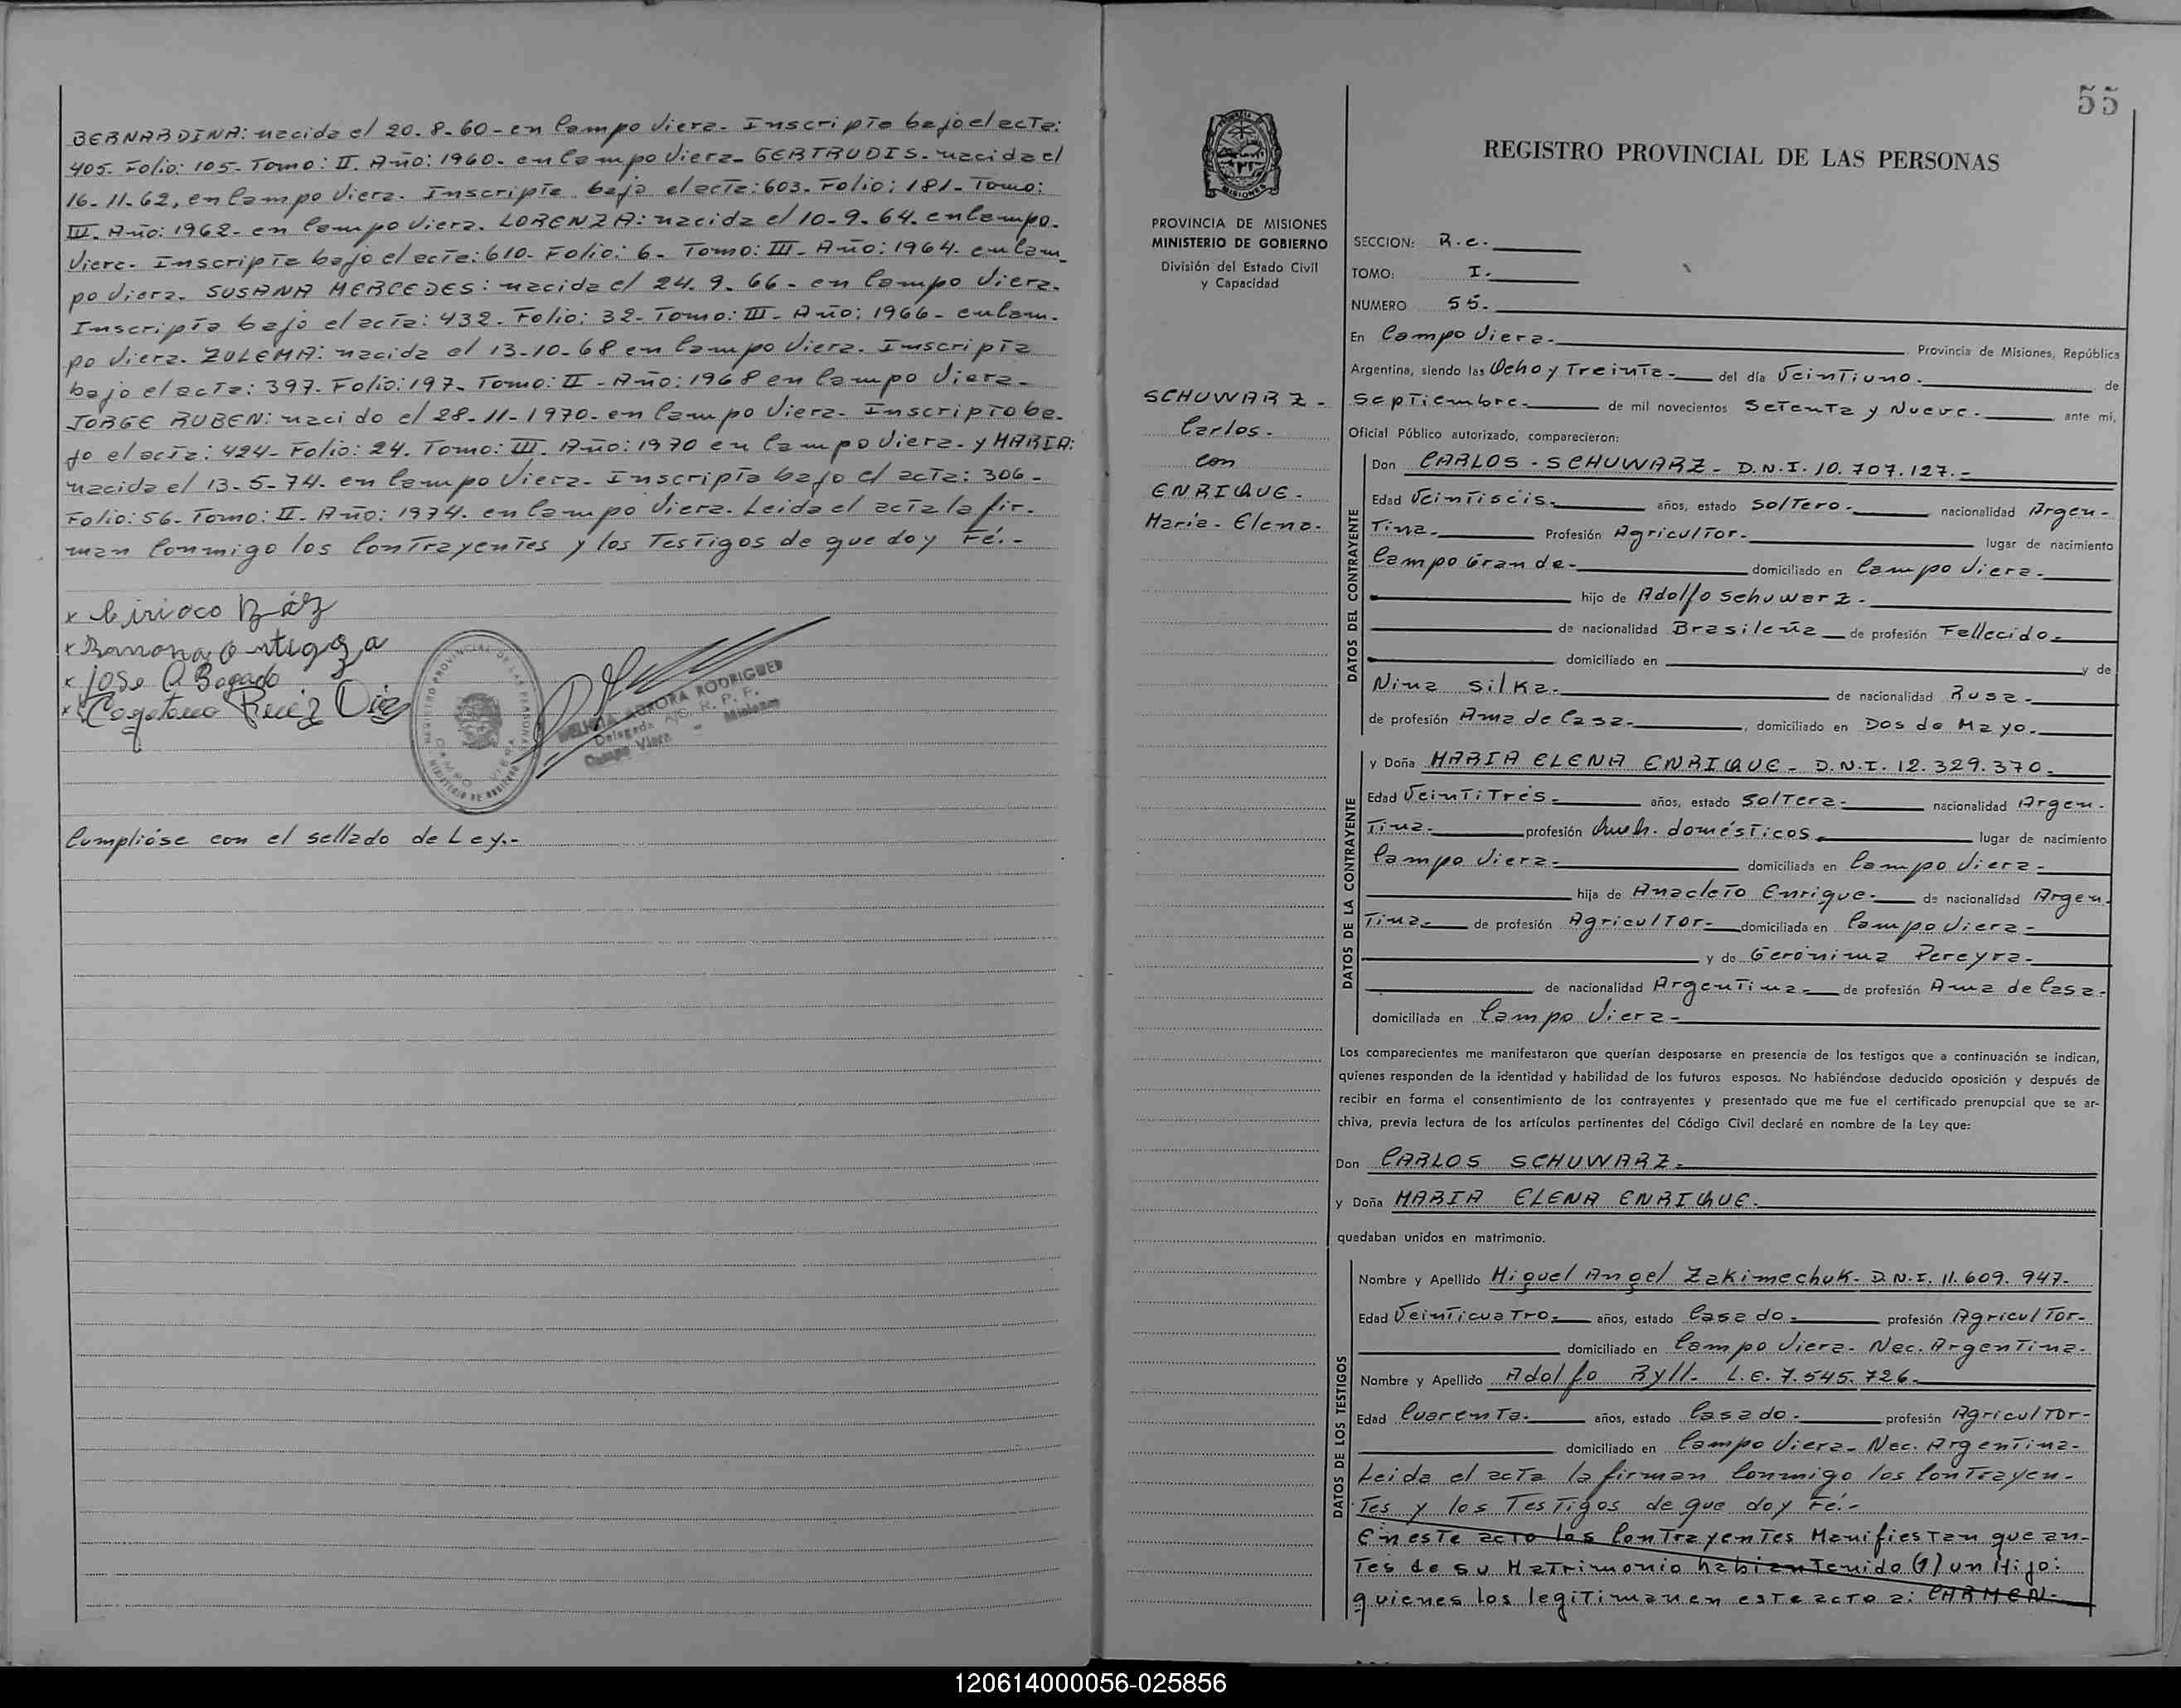 BERNARDINA: nacida el 20-8-60-en Campo Viera- Inscripta bajo el acta:
405- Folio: 105- Tomo: II. Año: 1960- en Campo Viera- GERTRUDIS- nacida el
16-11-62, en Campo Viera- Inscripta bajo el acta: 603- Folio: 181- Tomo:
III- Año: 1962- en Campo Viera. LORENZA: nacida el 10-9-64. en Campo-
Viera- Inscripta bajo el acta: 610- Folio: 6- Tomo: III- Año: 1964- en Cam-
po Viera. SUSANA MERCEDES: nacida el 24-9-66- en Campo Viera-
Inscripta bajo el acta: 432- Folio: 32- Tomo: III- Año: 1966- en Cam-
po Viera. ZULEMA: nacida el 13-10-68 en Campo Viera. Inscripta
bajo el acta: 397- Folio: 197- Tomo: II- Año: 1968 en Campo Viera-
JORGE RUBEN: nacido el 28-11-1970- en Campo Viera- Inscripto ba-
jo el acta: 424- Folio: 24. Tomo: III. Año: 1970 en Campo Viera- y MARIA:
nacida el 13-5-74- en Campo Viera- Inscripta bajo el acta: 306-
Folio: 56- Tomo: II- Año: 1974- en Campo Viera. Leida el acta la fir-
man Conmigo los Contrayentes y los Testigos de que doy Fé.-
x Ciriaco Báz
x Ramona Ortigoza
x Jose A Bogado
x Cayetano Ruiz Diaz
REGISTRO PROVINCIAL DE LAS PERSONAS
CAMPO VIERA
MINISTERIO DE GOBIERNO
AURORA RODRIGUEZ
Delegada A/C. R. P. P.
Campo Viera - Misiones
Cumplióse con el sellado de Ley.-
55
PROVINCIA DE MISIONES
MINISTERIO DE GOBIERNO
División del Estado Civil
y Capacidad
SCHUWARZ-
Carlos-
con
ENRIQUE-
Maria- Elena-
REGISTRO PROVINCIAL DE LAS PERSONAS
SECCION: R.c.
TOMO: I.
NUMERO 55-
En Campo Viera- Provincia de Misiones, República
Argentina, siendo las Ocho y Treinta- del día Veintiuno- de
Septiembre- de mil novecientos Setenta y Nueve- ante mi,
Oficial Público autorizado, comparecieron:
DATOS DEL CONTRAYENTE
Don CARLOS - SCHUWARZ- D.N.I. 10.707.127.-
Edad Veintiséis- años, estado Soltero- nacionalidad Argen-
tina- Profesión Agricultor- lugar de nacimiento
Campo Grande- domiciliado en Campo Viera-
hijo de Adolfo Schuwarz-
de nacionalidad Brasileña de profesión Fallecido-
domiciliado en y de
Nina Silka- de nacionalidad Rusa-
de profesión Ama de Casa-, domiciliado en Dos de Mayo-
DATOS DE LA CONTRAYENTE
y Doña MARIA ELENA ENRIQUE- D.N.I. 12.329.370-
Edad Veintitrés- años, estado Soltera- nacionalidad Argen-
tina- profesión Queh. domésticos- lugar de nacimiento
Campo Viera- domiciliada en Campo Viera-
hija de Anacleto Enrique- de nacionalidad Argen-
tina- de profesión Agricultor- domiciliada en Campo Viera-
y de Gerónima Pereyra-
de nacionalidad Argentina- de profesión Ama de Casa-
domiciliada en Campo Viera-
Los comparecientes me manifestaron que querían desposarse en presencia de los testigos que a continuación se indican,
quienes responden de la identidad y habilidad de los futuros esposos. No habiéndose deducido oposición y después de
recibir en forma el consentimiento de los contrayentes y presentado que me fue el certificado prenupcial que se ar-
chiva, previa lectura de los artículos pertinentes del Código Civil declaré en nombre de la Ley que:
Don CARLOS SCHUWARZ-
y Doña MARIA ELENA ENRIQUE-
quedaban unidos en matrimonio.
DATOS DE LOS TESTIGOS
Nombre y Apellido Miguel Angel Zakimechuk- D.N.I. 11.609.947-
Edad Veinticuatro- años, estado Casado- profesión Agricultor-
domiciliado en Campo Viera- Nac. Argentina-
Nombre y Apellido Adolfo Ryll- L.E. 7.545.726-
Edad Cuarenta- años, estado Casado- profesión Agricultor-
domiciliado en Campo Viera- Nac. Argentina-
Leida el acta la firman Conmigo los Contrayen-
tes y los Testigos de que doy Fé.-
En este acto los Contrayentes Manifiestan que an-
tes de su Matrimonio habian tenido (1) un Hijo:
quienes los legitiman en este acto a: CARMEN-
120614000056-025856